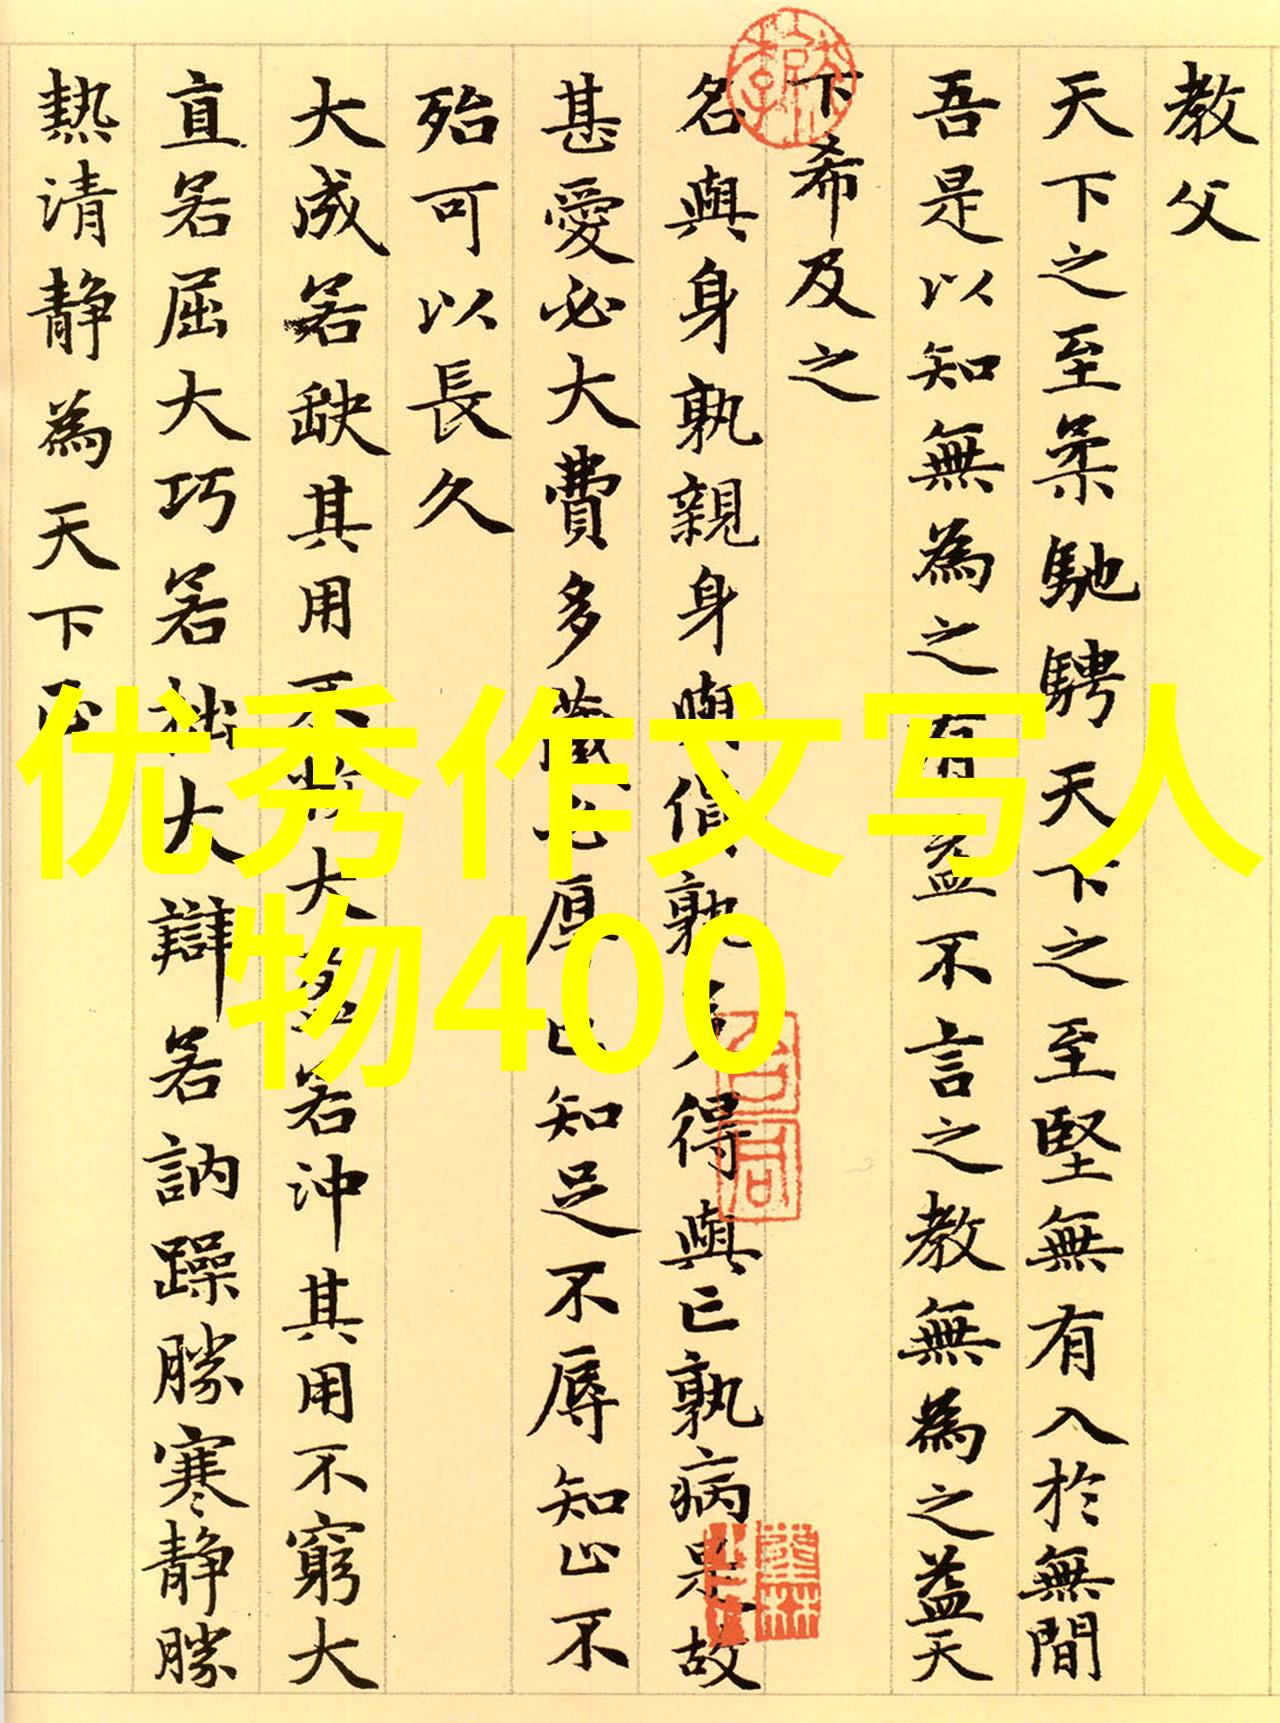 教父
天下之至柔馳騁天下之至堅無有入於無間
吾是以知無為之有益不言之教無為之益天
下希及之
名與身孰親身與貨孰多得與亡孰病是故
甚愛必大費多藏必厚亡知足不辱知止不
殆可以長久
大成若缺其用不弊大盈若沖其用不窮大
直若屈大巧若拙大辯若訥躁勝寒静勝
熱清静為天下正
优秀作文写人
物400